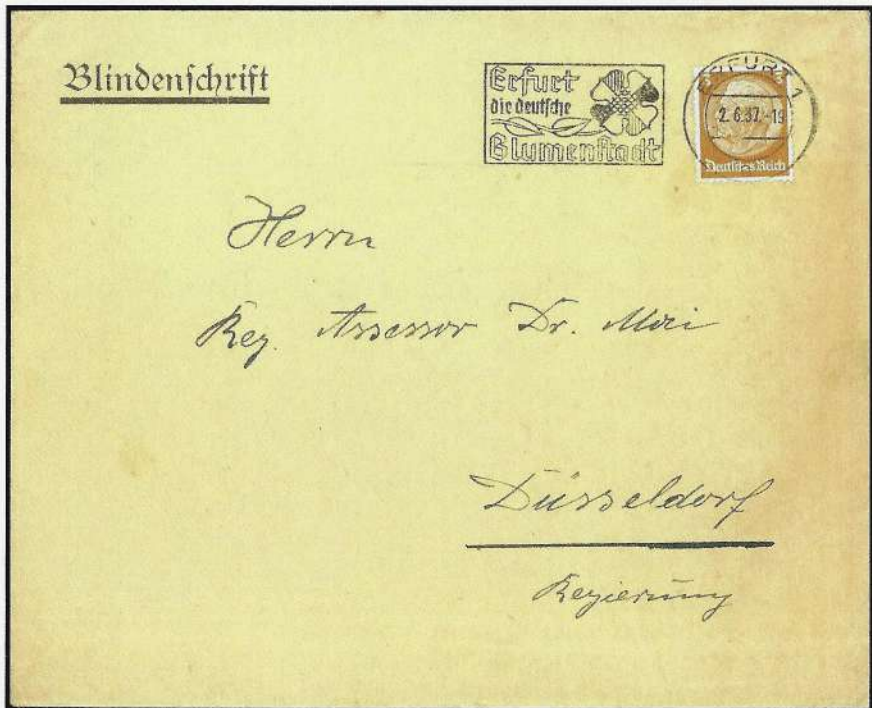 Blindenschrift
Erfurt
die deutsche
Blumenstadt
ERFURT 1
2.6.37.-19
Deutsches Reich
Herrn
Reg. Assessor Dr. Mai
Düsseldorf
Regierung